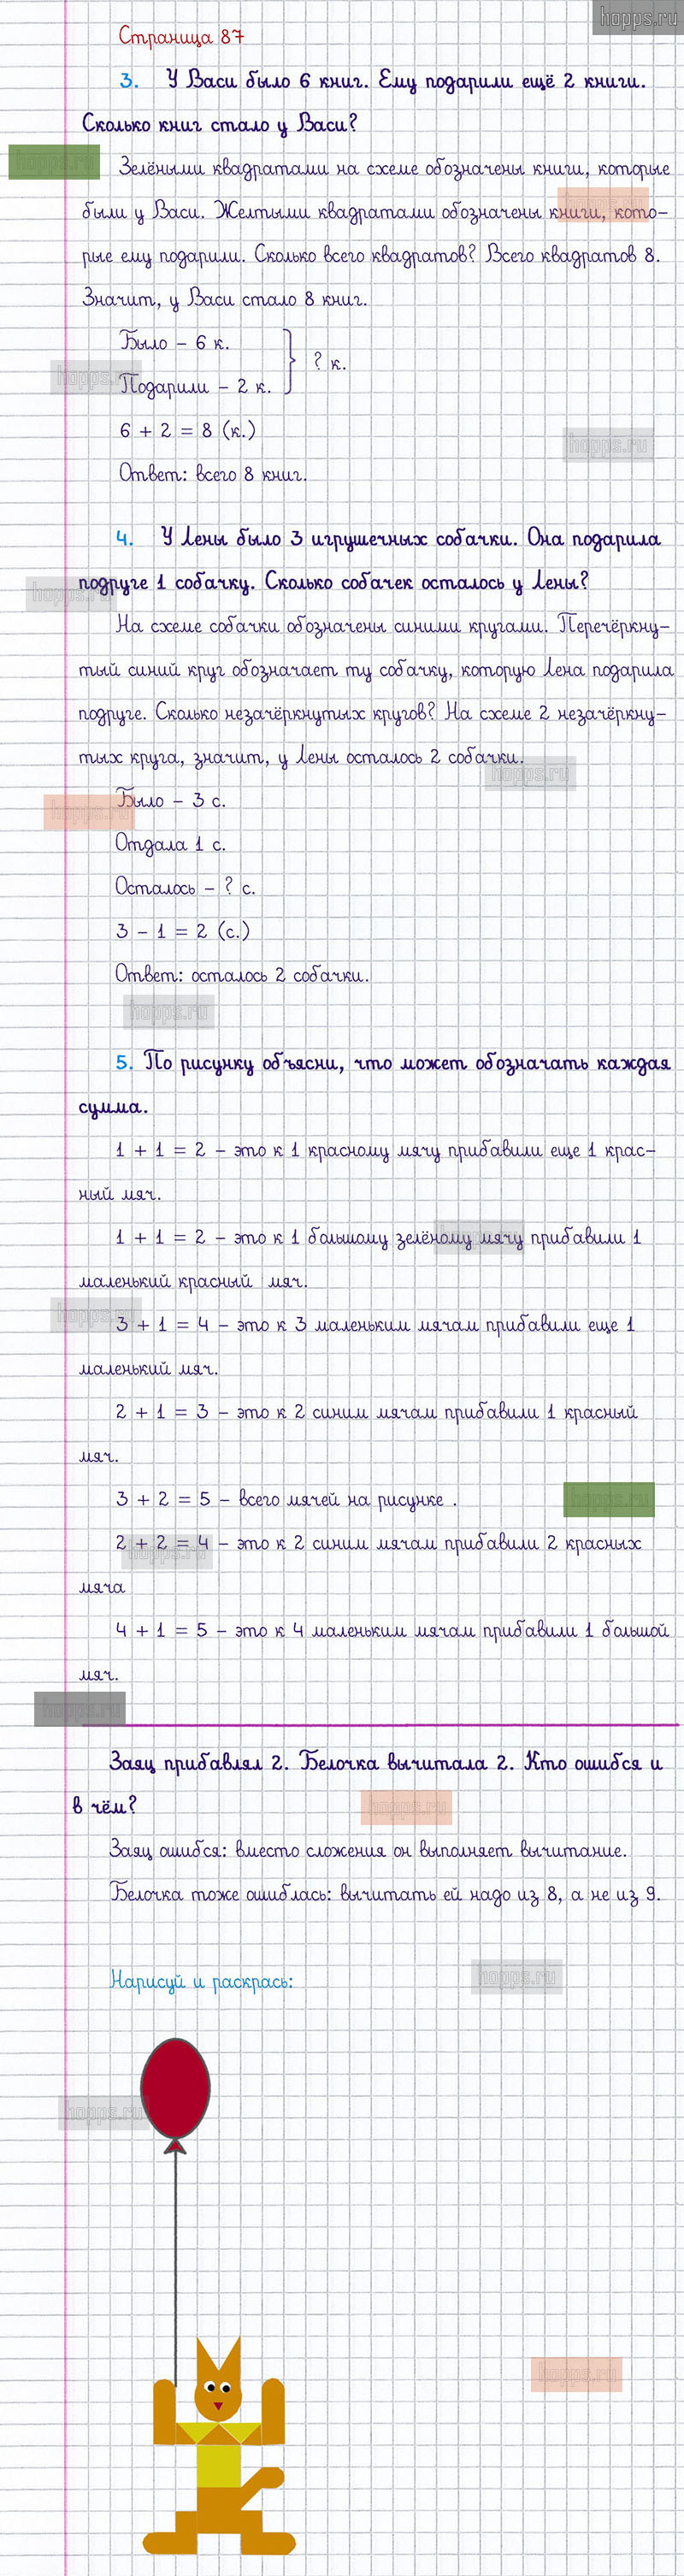 hopps.ru
Страница 87
3. У Васи было 6 книг. Ему подарили ещё 2 книги.
Сколько книг стало у Васи?
hopps.ru
Зелёными квадратами на схеме обозначены книги, которые
были у Васи. Желтыми квадратами обозначены книги, кото-
рые ему подарили. Сколько всего квадратов? Всего квадратов 8.
Значит, у Васи стало 8 книг.
Было – 6 к.
} ? к.
hopps.ru
Подарили – 2 к.
6 + 2 = 8 (к.)
hopps.ru
Ответ: всего 8 книг.
4. У Лены было 3 игрушечных собачки. Она подарила
подруге 1 собачку. Сколько собачек осталось у Лены?
hopps.ru
На схеме собачки обозначены синими кругами. Перечёркну-
тый синий круг обозначает ту собачку, которую Лена подарила
подруге. Сколько незачёркнутых кругов? На схеме 2 незачёркну-
тых круга, значит, у Лены осталось 2 собачки.
hopps.ru
Было – 3 с.
hopps.ru
Отдала 1 с.
Осталось – ? с.
3 – 1 = 2 (с.)
Ответ: осталось 2 собачки.
hopps.ru
5. По рисунку объясни, что может обозначать каждая
сумма.
1 + 1 = 2 – это к 1 красному мячу прибавили еще 1 крас-
ный мяч.
1 + 1 = 2 – это к 1 большому зелёному мячу прибавили 1
маленький красный мяч.
hopps.ru
3 + 1 = 4 – это к 3 маленьким мячам прибавили еще 1
маленький мяч.
2 + 1 = 3 – это к 2 синим мячам прибавили 1 красный
мяч.
3 + 2 = 5 – всего мячей на рисунке .
hopps.ru
2 + 2 = 4 – это к 2 синим мячам прибавили 2 красных
hopps.ru
мяча
4 + 1 = 5 – это к 4 маленьким мячам прибавили 1 большой
мяч.
hopps.ru
Заяц прибавлял 2. Белочка вычитала 2. Кто ошибся и
в чём?
hopps.ru
Заяц ошибся: вместо сложения он выполняет вычитание.
Белочка тоже ошиблась: вычитать ей надо из 8, а не из 9.
Нарисуй и раскрась:
hopps.ru
hopps.ru
hopps.ru